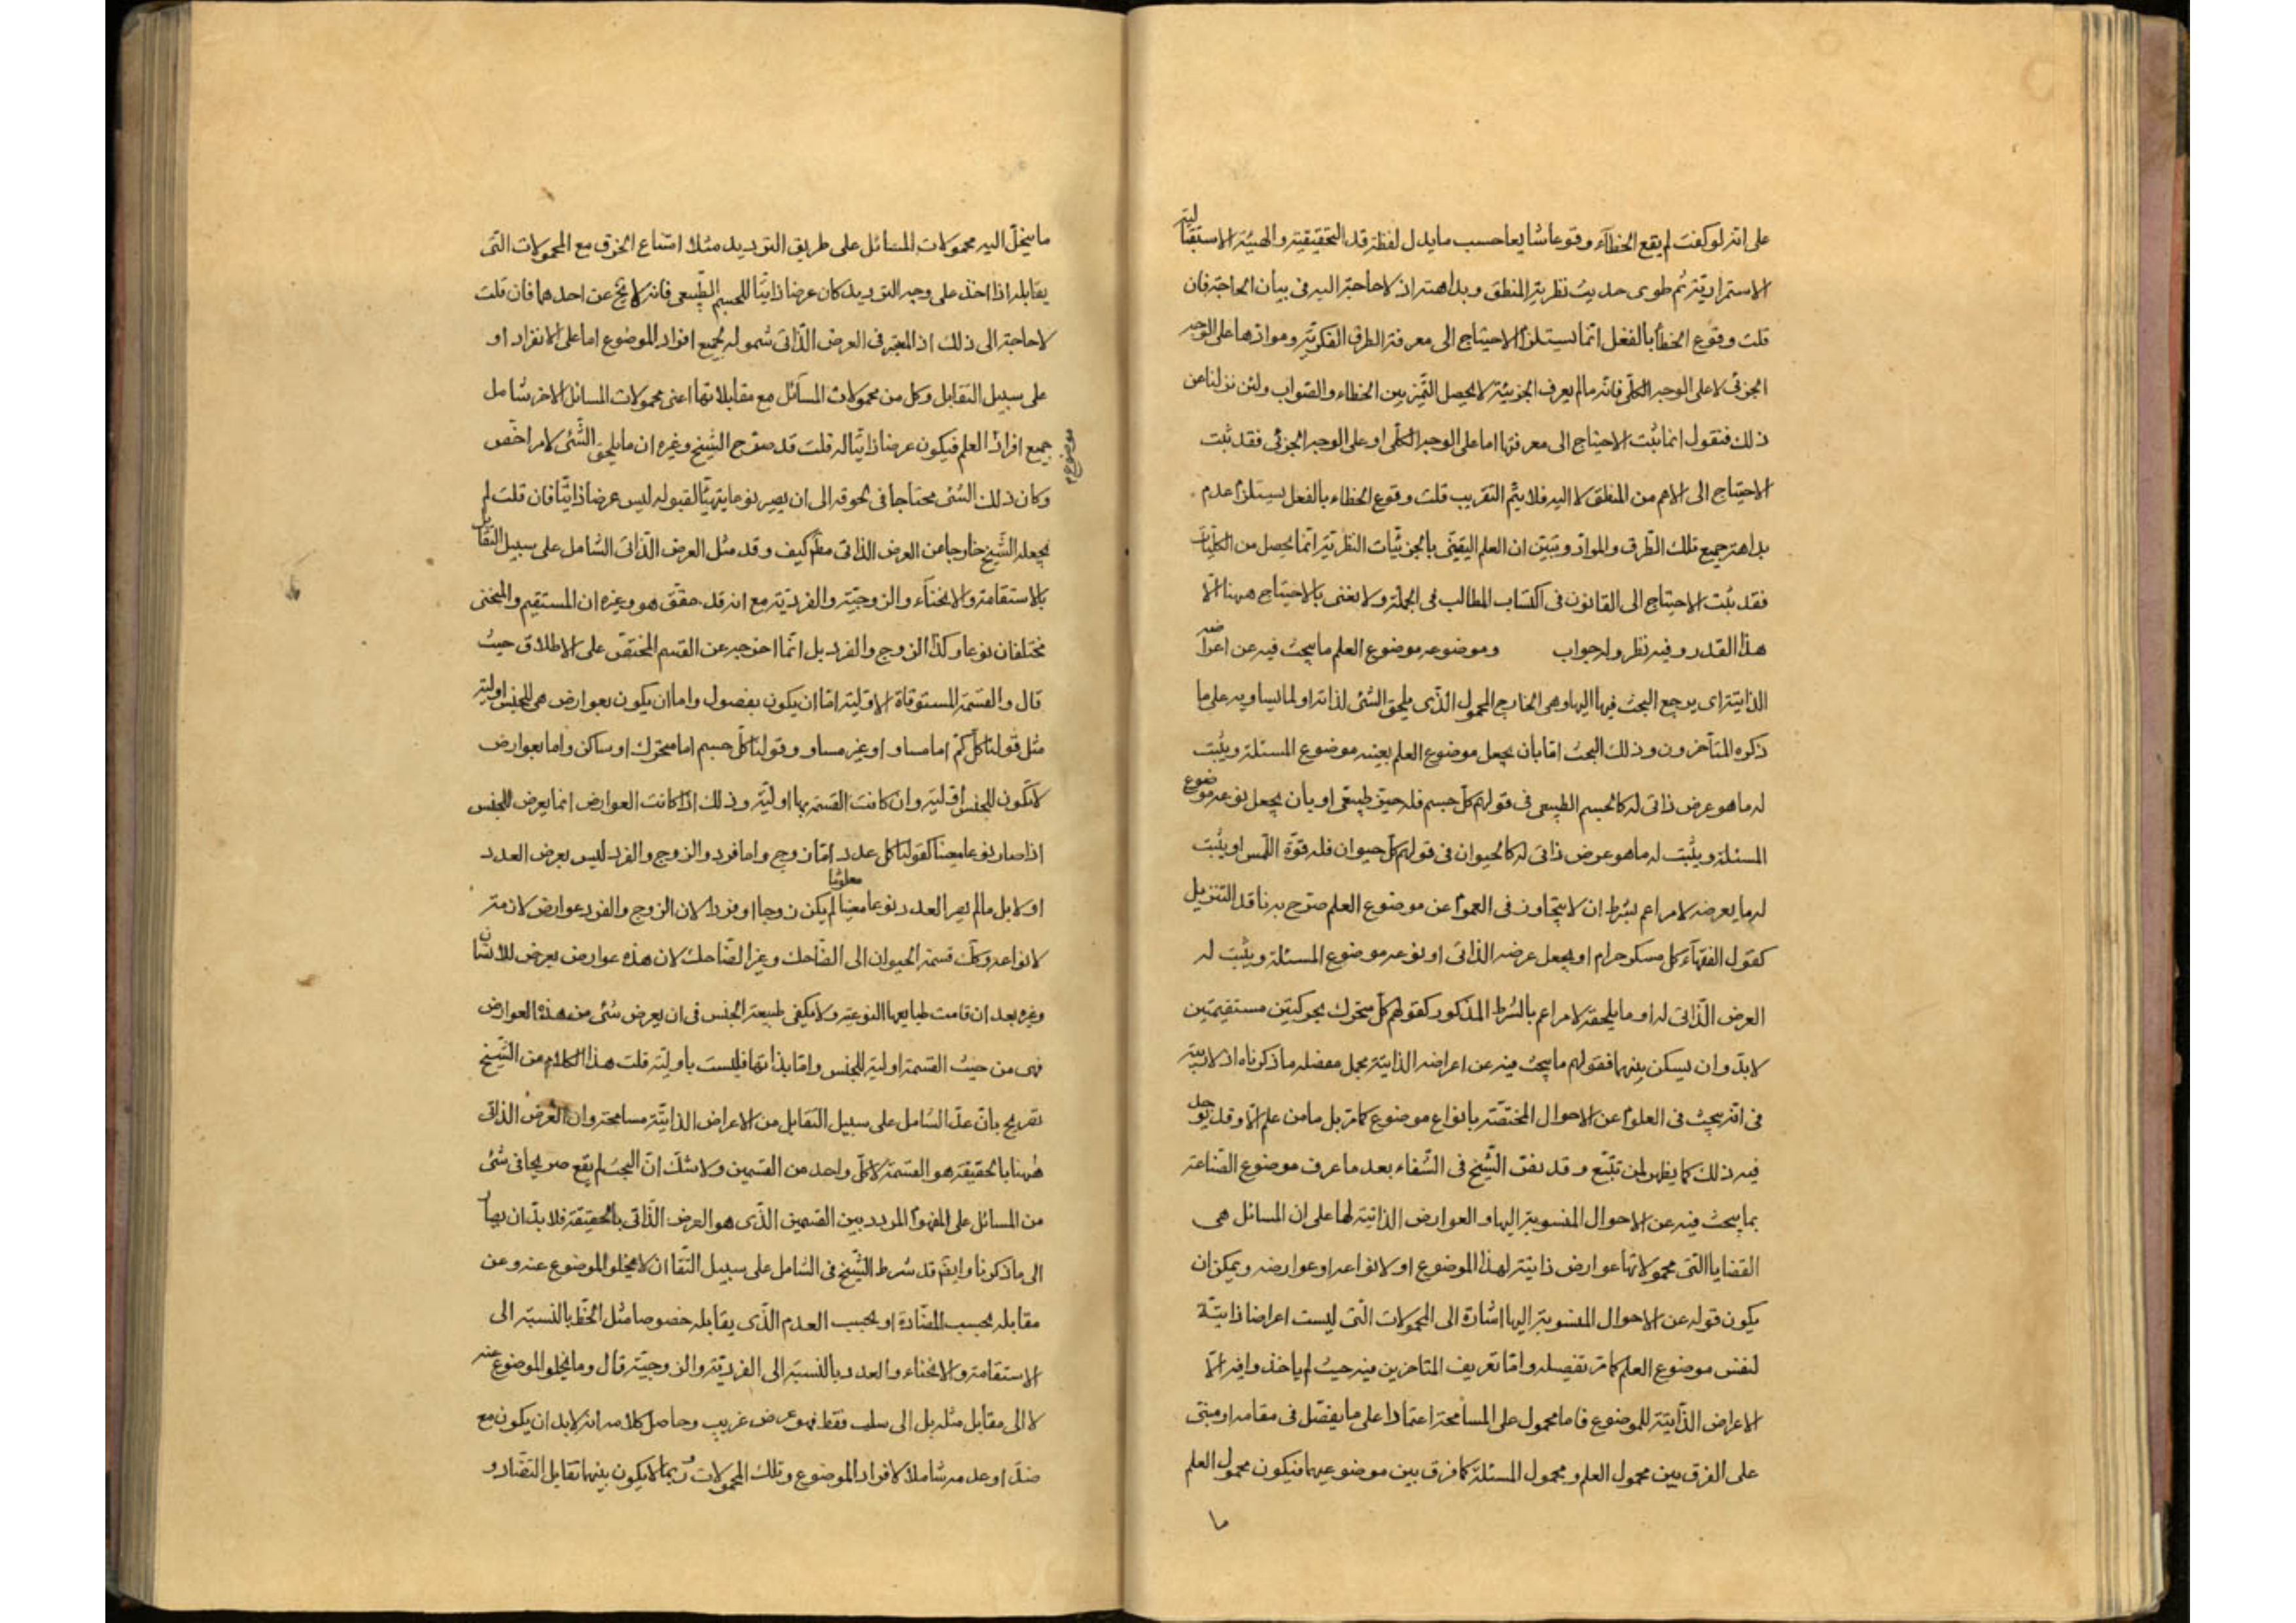 على انه لو كفت لم يقع الخطاء وقوعا شايعا حسب ما يدل لفظة قد التحقيقية والهيئة الاستقبالية
الاستمرارية ثم طوى حديث نظرية المنطق وبداهته اذ لا حاجة اليه فى بيان الحاجة فان
قلت وقوع الخطأ بالفعل انما يستلزم الاحتياج الى معرفة الطرق الفكرية وموادها على الوجه
الجزئى لا على الوجه الكلى فانه ما لم يعرف الجزئية لا يحصل التميز بين الخطاء والصواب ولئن نزلنا عن
ذلك فنقول انما يثبت الاحتياج الى معرفتها اما على الوجه الكلى او على الوجه الجزئى فقد ثبت
الاحتياج الى الاعم من المنطق لا اليه فلا يتم التقريب قلت وقوع الخطاء بالفعل يستلزم عدم
بداهة جميع تلك الطرق والمواد وتبين ان العلم اليقينى بالجزئيات النظرية انما يحصل من الكليات
فقد ثبت الاحتياج الى القانون فى اكتساب المطالب فى الجملة ولا نعنى بالاحتياج ههنا الا
هذا القدر وفيه نظر وله جواب وموضوعه موضوع العلم ما يبحث فيه عن اعراضه
الذاتية اى يرجع البحث فيها اليها وهى الخارج المحمول الذى يلحق الشئ لذاته او لما يساويه على ما
ذكره المتأخرون وذلك البحث اما بان يجعل موضوع العلم بعينه موضوع المسئلة ويثبت
له ما هو عرض ذاتى له كالجسم الطبيعى فى قولهم كل جسم فله حيز طبيعى او بان يجعل نوعه موضوع
المسئلة ويثبت له ما هو عرض ذاتى له كالحيوان فى قولهم كل حيوان فله قوة اللمس او يثبت
له ما يعرضه لامر اعم بشرط ان لا يتجاوز فى العموم عن موضوع العلم صرح به ناقد التنزيل
كقول الفقهاء كل مسكر حرام او يجعل عرضه الذاتى او نوعه موضوع المسئلة ويثبت له
العرض الذاتى له او ما يلحقه لامر اعم بالشرط المذكور كقولهم كل متحرك بحركتين مستقيمتين
لابد وان يسكن بينهما فقولهم ما يبحث فيه عن اعراضه الذاتية مجمل مفصله ما ذكرناه اذ لا ريبة
فى انه يبحث فى العلوم عن الاحوال المختصة بانواع موضوع كما مر بل ما من علم الا وقد يوجد
فيه ذلك كما يظهر لمن تتبع وقد نص الشيخ فى الشفاء بعد ما عرف موضوع الصناعة
بما يبحث فيه عن الاحوال المنسوبة اليها والعوارض الذاتية لها على ان المسائل هى
القضايا التى محمولاتها عوارض ذاتية لهذا الموضوع او لانواعه او عوارضه ويمكن ان
يكون قوله عن الاحوال المنسوبة اليها اشارة الى المحمولات التى ليست اعراضا ذاتية
لنفس موضوع العلم كما مر تفصيله واما تعريف المتاخرين فيه حيث لم ياخذوا فيه الا
الاعراض الذاتية للموضوع فاما محمول على المسامحة اعتمادا على ما يفصل فى مقامه او مبنى
على الفرق بين محمول العلم ومحمول المسئلة كما فرق بين موضوعيهما فيكون محمول العلم
ما
ما ينحل اليه محمولات المسائل على طريق الترديد مثلا امتناع الخرق مع المحمولات التى
يقابله اذا اخذ على وجه الترديد كان عرضا ذاتيا للجسم الطبيعى فانه لا يخ عن احدهما فان قلت
لا حاجة الى ذلك اذ المعتبر فى العرض الذاتى شموله لجميع افراد الموضوع اما على الانفراد او
على سبيل التقابل وكل من محمولات المسآئل مع مقابلاتها اعنى محمولات المسائل الاخر شامل
جميع افراد العلم فيكون عرضا ذاتيا له قلت قد صرح الشيخ وغيره ان ما يلحق الشئ لامر اخص
موضوع
وكان ذلك الشئ محتاجا فى لحوقه الى ان يصير نوعا يتهيأ لقبوله ليس عرضا ذاتيا فان قلت لم
يجعله الشيخ خارجا من العرض الذاتى مطم كيف وقد مثل العرض الذاتى الشامل على سبيل التقابل
بالاستقامة والانحناء والزوجية والفردية مع انه قد حقق هو وغيره ان المستقيم والمنحنى
مختلفان نوعا وكذا الزوج والفرد بل انما اخرجه عن القسم المختص على الاطلاق حيث
قال والقسمة المستوفاة الاولية اما ان يكون بفصول واما ان يكون بعوارض هى للجنس اولية
مثل قولنا كل كم اما مساو او غير مساو وقولنا كل جسم اما متحرك او ساكن واما بعوارض
لا تكون للجنس اولية وان كانت القسمة بها اولية وذلك اذا كانت العوارض انما يعرض للجنس
اذا صار نوعا معينا كقولنا كل عدد اما زوج واما فرد والزوج والفرد ليس يعرض للعدد
اولا بل ما لم يصر العدد نوعا معينا معلوما لم يكن زوجا او فردا لان الزوج والفرد عوارض لازمة
لانواعه وكك قسمة الحيوان الى الضاحك وغير الضاحك لان هذه عوارض يعرض للانسان
وغيره بعد ان قامت طبايعها النوعية ولا يكفى طبيعة الجنس فى ان يعرض شئ من هذه العوارض
فهى من حيث القسمة اولية للجنس واما بذاتها فليست باولية قلت هذا الكلام من الشيخ
تصريح بان عد الشامل على سبيل التقابل من الاعراض الذاتية مسامحة وان العرض الذاتى
ههنا بالحقيقة هو القسمة لا كل واحد من القسمين ولا شك ان البحث لم يقع صريحا فى شئ
من المسائل على المفهوم المردد بين القسمين الذى هو العرض الذاتى بالحقيقة فلا بد ان يصار
الى ما ذكرنا وايضم قد شرط الشيخ فى الشامل على سبيل التقا ان لا يخلو الموضوع عنه وعن
مقابله بحسب المضادة او بحسب العدم الذى يقابله خصوصا مثل الخط بالنسبة الى
الاستقامة والانحناء والعدد بالنسبة الى الفردية والزوجية قال وما يخلو الموضوع عنه
لا الى مقابل مثله بل الى سلب فقط فهو عرض غريب وحاصل كلامه انه لابد ان يكون مع
ضده او عدمه شاملا لافراد الموضوع وتلك المحمولات ربما لا يكون بينها تقابل التضاد و